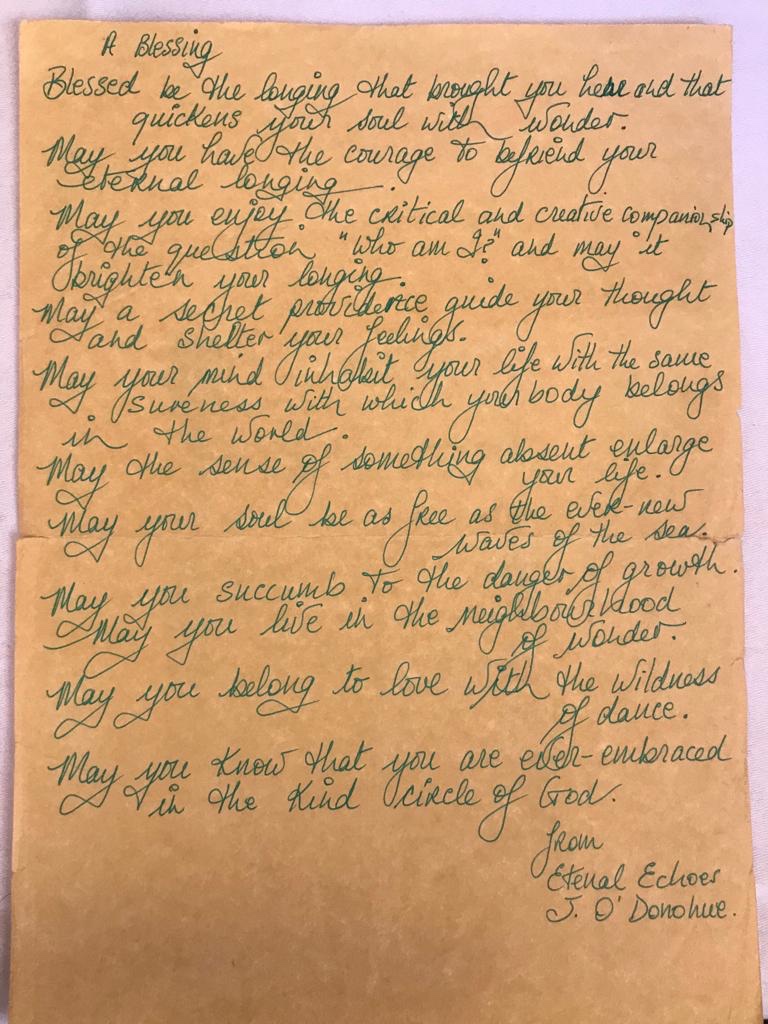 A Blessing
Blessed be the longing that brought you here and that
quickens your soul with wonder.
May you have the courage to befriend your
eternal longing.
May you enjoy the critical and creative companionship
of the question "Who am I?" and may it
brighten your longing.
May a secret providence guide your thought
and shelter your feelings.
May your mind inhabit your life with the same
sureness with which your body belongs
in the world.
May the sense of something absent enlarge
your life.
May your soul be as free as the ever-new
waves of the sea.
May you succumb to the danger of growth.
May you live in the neighbourhood
of wonder.
May you belong to love with the wildness
of dance.
May you know that you are ever-embraced
in the kind circle of God.
from
Etenal Echoes
J. O'Donohue.